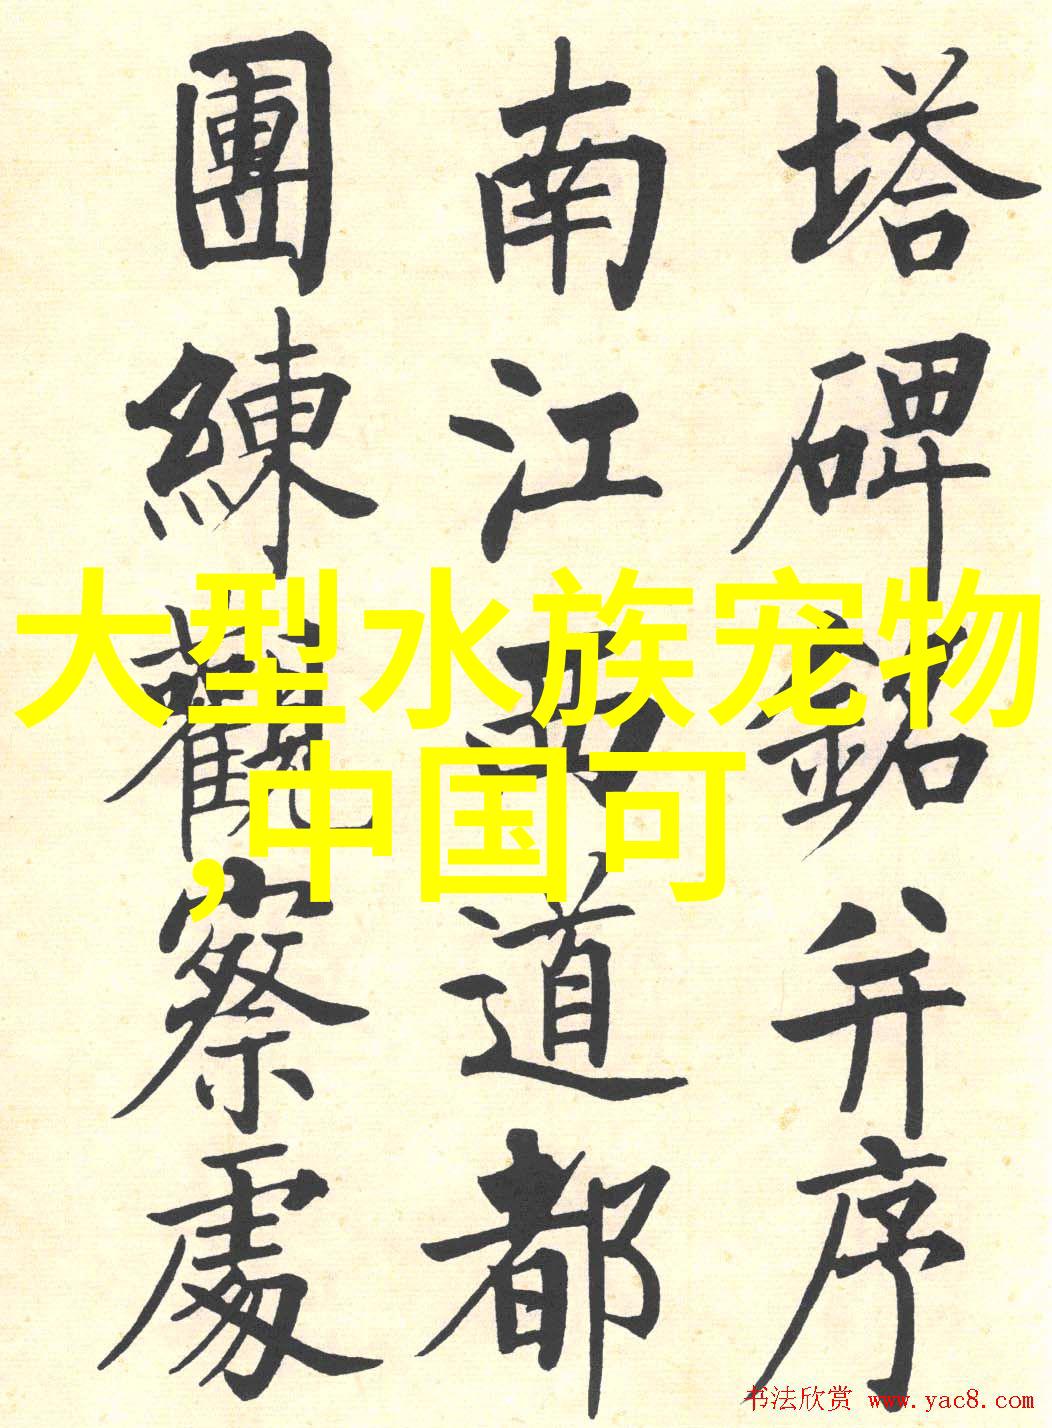 塔碑銘并序
南江西道都
團練觀察處
大型水族宠物
,中国可
书法欣赏 www.yac8.com